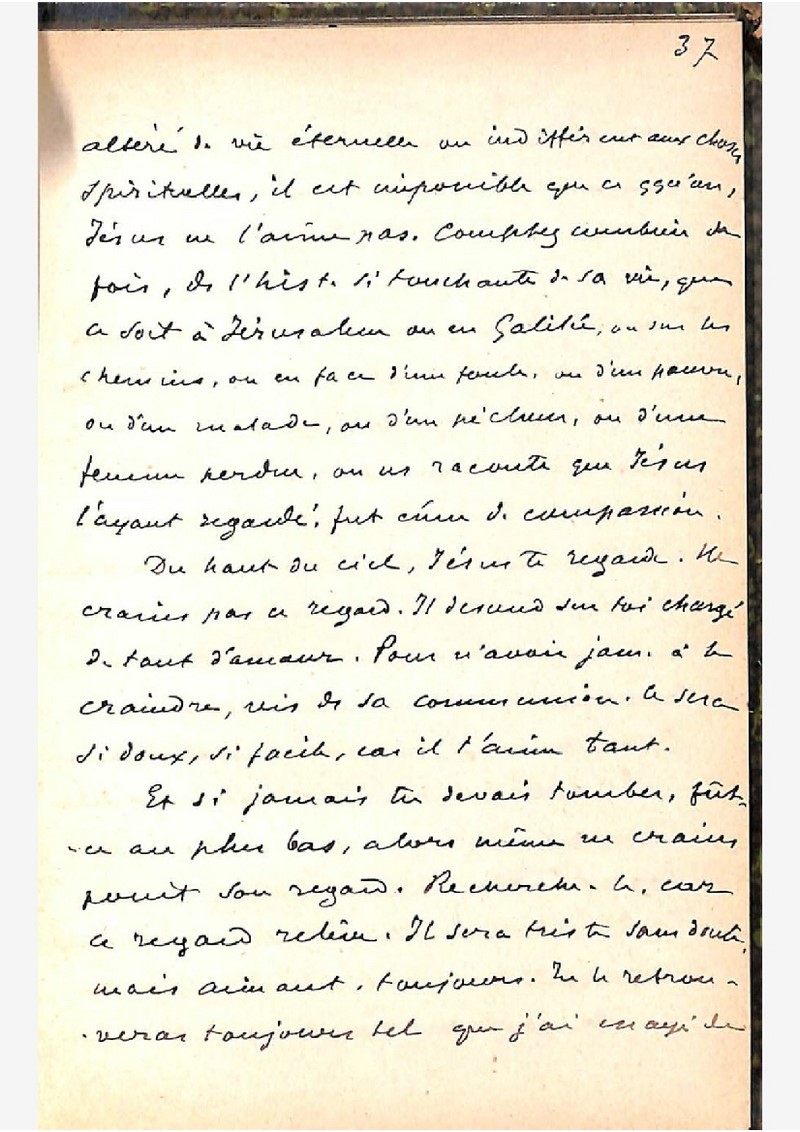 37
altéré de vie éternelle ou indifférent aux choses
spirituelles, il est impossible que ce qqu'un,
Jésus ne l'aime pas. Comptez combien de
fois, ds l'hist. si touchante de sa vie, que
ce soit à Jérusalem ou en Galilée, ou sur les
chemins, ou en face d'une foule, ou d'un pauvre,
ou d'un malade, ou d'un pécheur, ou d'une
femme perdue, on ns raconte que Jésus
l'ayant regardé, fut ému de compassion.
Du haut du ciel, Jésus te regarde. Ne
crains pas ce regard. Il descend sur toi chargé
de tant d'amour. Pour n'avoir jam. à le
craindre, vis ds sa communion. Ce sera
si doux, si facile, car il t'aime tant.
Et si jamais tu devais tomber, fût-
-ce au plus bas, alors même ne crains
point son regard. Recherche-le, car
ce regard relève. Il sera triste sans doute,
mais aimant, toujours. Tu le retrou-
-veras toujours tel que j'ai essayé de